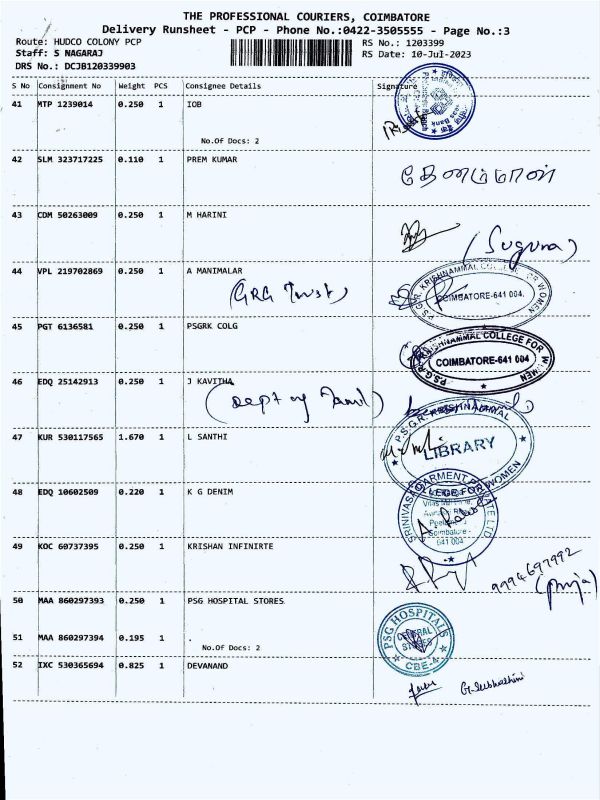 THE PROFESSIONAL COURIERS, COIMBATORE
Delivery Runsheet - PCP - Phone No.:0422-3505555 - Page No.:3
Route: HUDCO COLONY PCP RS No.: 1203399
Staff: S NAGARAJ RS Date: 10-Jul-2023
DRS No.: DCJB120339903
S No Consignment No Weight PCS Consignee Details Signature
41 MTP 1239014 0.250 1 IOB
No.Of Docs: 2
42 SLM 323717225 0.110 1 PREM KUMAR
43 CDM 50263009 0.250 1 M HARINI
(Suguna)
44 VPL 219702869 0.250 1 A MANIMALAR
(GRG Trust)
P.S.G.R. KRISHNAMMAL COLLEGE FOR WOMEN
COIMBATORE-641 004.
45 PGT 6136581 0.250 1 PSGRK COLG
P.S.G.R. KRISHNAMMAL COLLEGE FOR WOMEN
COIMBATORE-641 004
46 EDQ 25142913 0.250 1 J KAVITHA
(Dept of Tamil)
47 KUR 530117565 1.670 1 L SANTHI
P.S.G.R. KRISHNAMMAL
LIBRARY
COLLEGE FOR WOMEN
48 EDQ 10602509 0.220 1 K G DENIM
SRINIVASA GARMENT PRIVATE LTD
Coimbatore -
641 004
49 KOC 60737395 0.250 1 KRISHAN INFINIRTE
9994697992
(Puja)
50 MAA 860297393 0.250 1 PSG HOSPITAL STORES
51 MAA 860297394 0.195 1
No.Of Docs: 2
PSG HOSPITALS
CENTRAL
STORES
CBE-4
52 IXC 530365694 0.825 1 DEVANAND
G. Subhashini